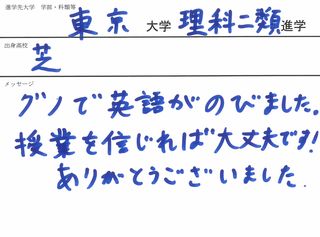 進学先大学 学部・科類等
東京大学理科二類進学
出身高校
芝
メッセージ
グノで英語がのびました。
授業を信じれば大丈夫です!
ありがとうございました.